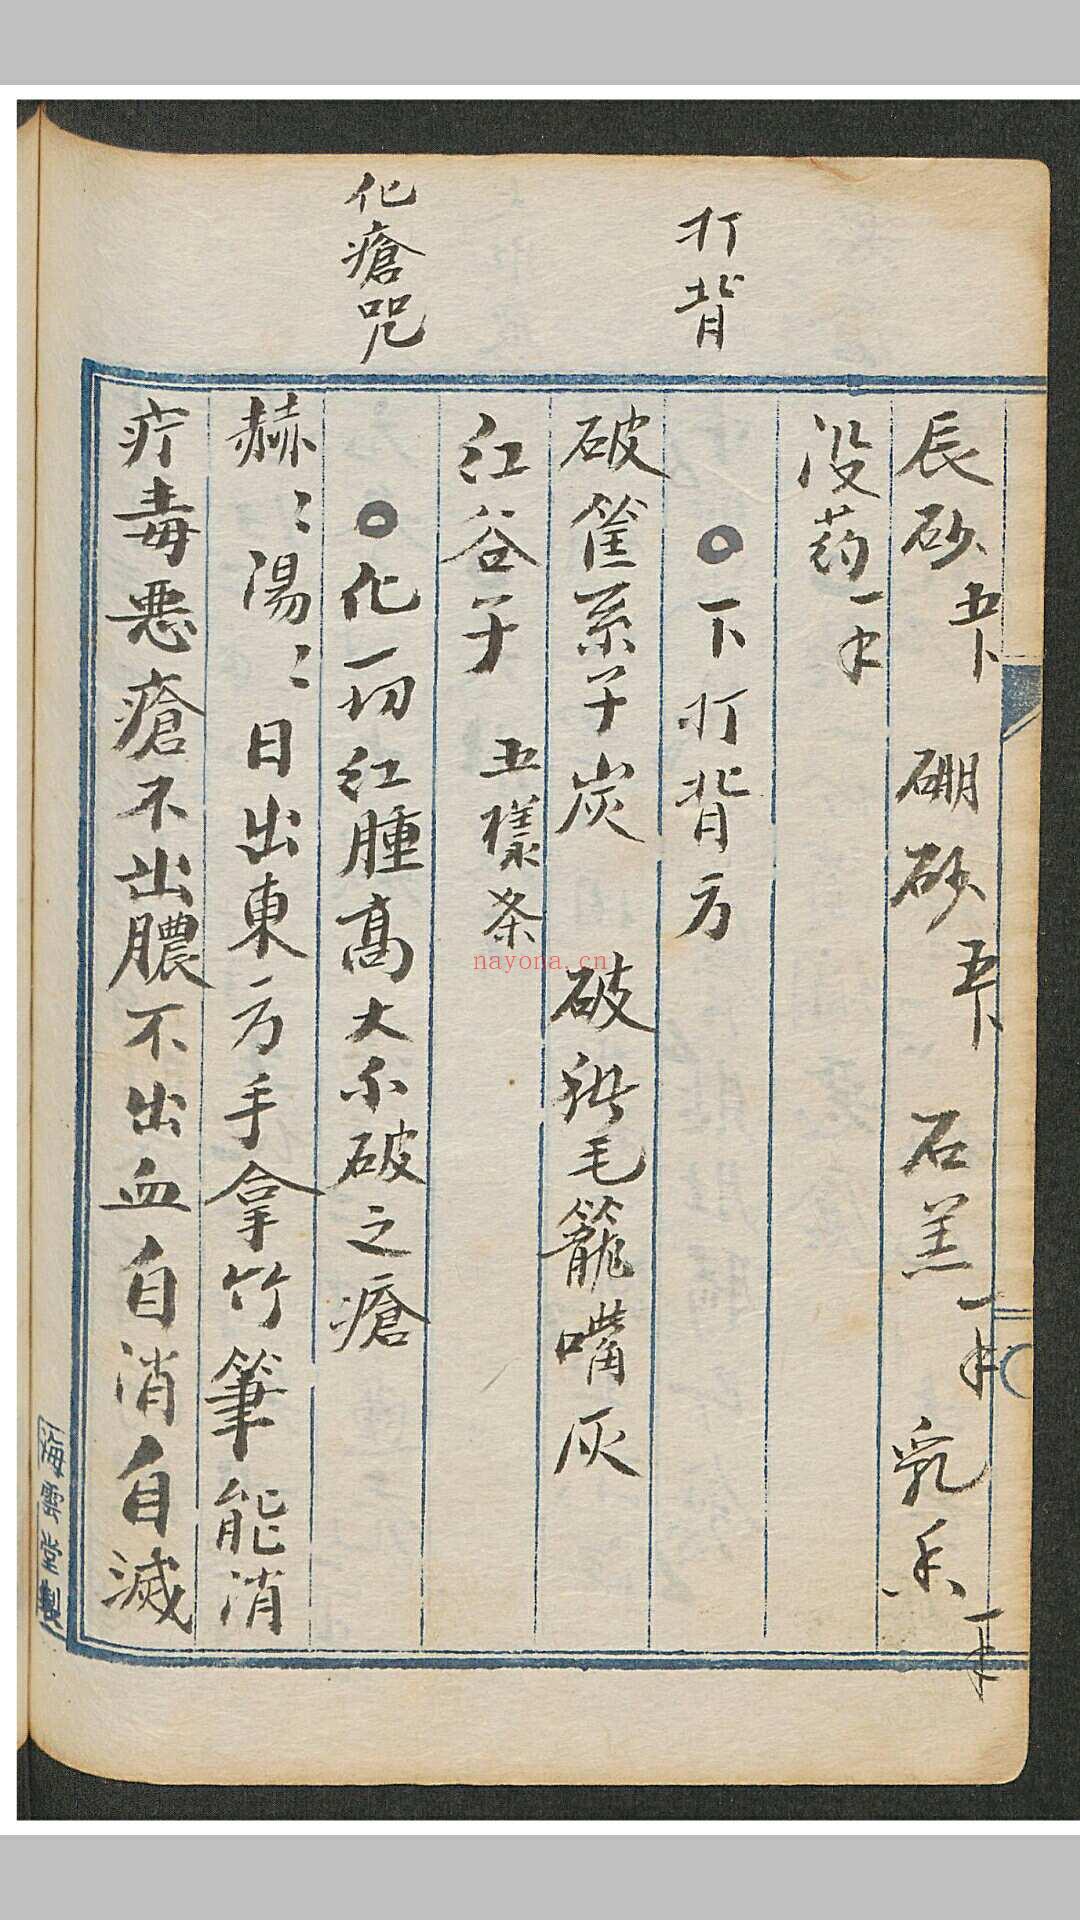 打背
化瘡咒
辰砂五卜 硼砂五卜 石羔一 乳香一
没药一
○下打背方
破筐系子炭 破 毛籠嘴灰
红谷子 五樣条
○化一切红腫高大不破之瘡
赫〻湯〻日出東方手拿竹筆能消
疔毒恶瘡不出膿不出血自消自滅
海雲堂製
nayona.cn